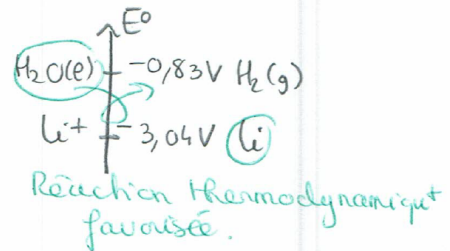 E°
H₂O(l) -0,83V H₂(g)
Li⁺ -3,04V Li
Réaction thermodynamiqu⁺
favorisée.